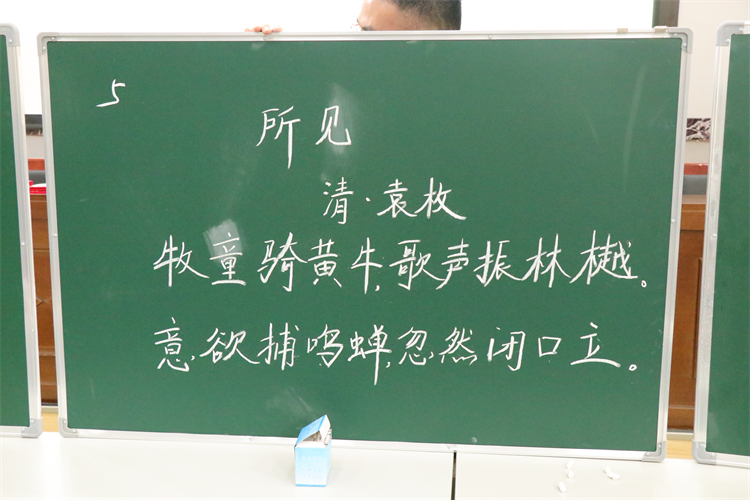 5
所见
清·袁枚
牧童骑黄牛,歌声振林樾。
意欲捕鸣蝉,忽然闭口立。